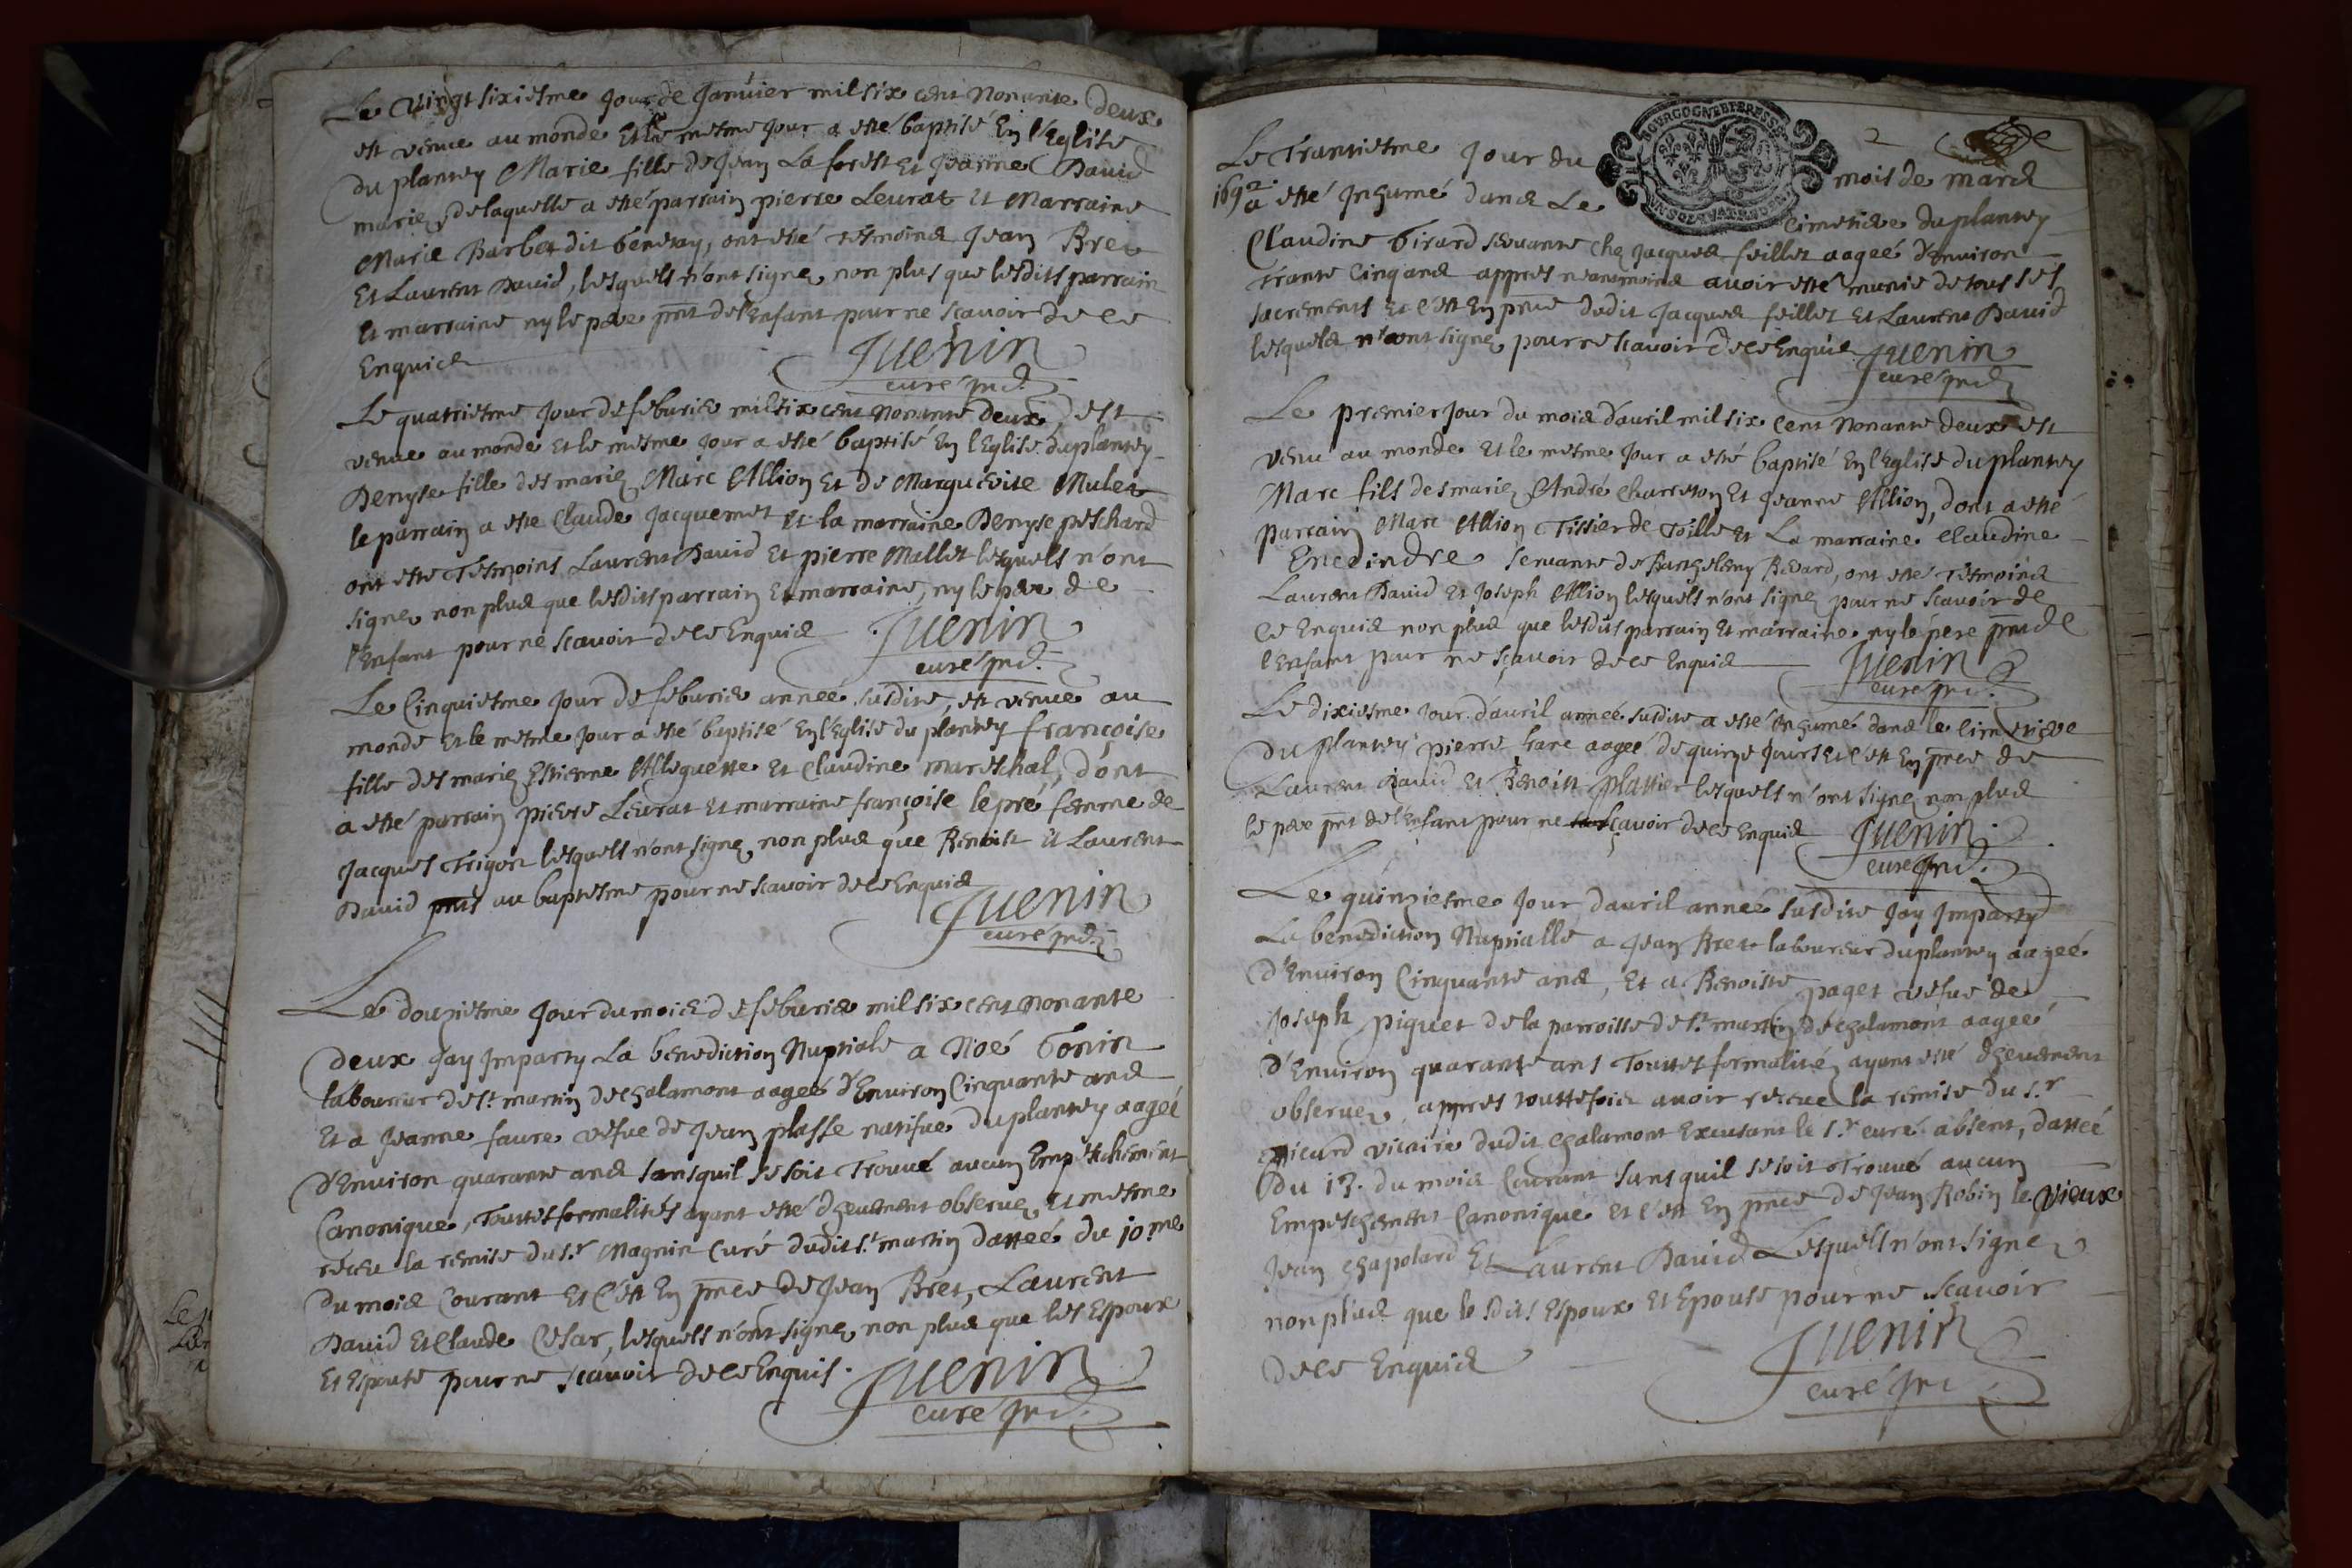 Le vingt sixiesme jour de Janvier mil six cent nonante deux
est venue au monde et le mesme jour a esté baptisé en l'Eglise
du plantey Marie fille de Jean Laforest et Jeanne David
mariez, de laquelle a esté parrain pierre Leurat et Marraine
Marie Barbet dit beneray, ont esté tesmoins Jean Bret
Et Laurent David, lesquels n'ont signe, non plus que lesdits parrain
et marraine ny le pere pnt de l'Enfant pour ne sçavoir de ce
Enquis
Juenin
curé ind.
Le quatriesme jour de feburier mil six cent nonante deux est
venue au monde et le mesme jour a esté baptisé en l'Eglise du plantey
Denyse fille des mariez Marc Allion et de Marguerite Mulet
le parrain a esté Claude Jacquemet et la marraine Denyse peschard
ont esté Tesmoins Laurent David et pierre Mallet lesquels n'ont
signe, non plus que lesdits parrain et marraine, ny le pere de
l'Enfant pour ne scavoir de ce Enquis
Juenin
curé ind.
Le Cinquiesme jour de feburier année susdite, est venue au
monde et le mesme jour a esté baptisé en l'Eglise du plantey françoise
fille des mariez Estienne Alleguette et Claudine mareschal, dont
a esté parrain pierre Leurat et marraine françoise lepré femme de
Jacques Trigon lesquels n'ont signe, non plus que Benoist et Laurent
David pnts au baptesme pour ne scavoir de ce Enquis
Juenin
curé ind.
Le douziesme jour du mois de feburier mil six cent nonante
deux Jay Imparty La benediction Nuptiale a Noé bonin
laboureur de st. martin de chalamont aagée d'Environ Cinquante ans
Et a Jeanne faure vefue de Jean plasse natifue du plantey aagée
d'Environ quarante ans sans quil se soit Trouvé aucun Empeschement
Canonique, Touttes formalités ayant esté dheuement observez, et mesme
receu la remise du s.r Magnin Curé dudit s.t martin dattée du 10.me
du mois Courant Et C'est en pnce de Jean Bret, Laurent
David et Claude Cesar, lesquels n'ont signe, non plus que les Espoux
Et Espouse pour ne scavoir de ce Enquis.
Juenin
curé ind.
BOURGOGNE BRESSE
2
Le Trantiesme jour du mois de mars
1692. a esté Inhumé dans Le Cimetiere du plantey
Claudine Girard servante chez Jacques feillet aagée d'Environ
Trante Cinq ans appres neanmoins avoir esté munie de tous ses
sacrements et c'est En pnce dudit Jacques feillet et Laurent David
lesquels n'ont signe, pour ne scavoir de ce Enquis
Juenin
curé ind.
Le premier jour du mois d'avril mil six cent nonante deux est
venu au monde et le mesme jour a esté baptisé En l'Eglise du plantey
Marc fils des mariez André Charreton et Jeanne Allion, dont a esté
parrain Marc Allion Tissier de Toille et La marraine Claudine
Servante de Barthelemy Bevard, ont esté Tesmoins
Laurent David et Joseph Allion lesquels n'ont signe, pour ne scavoir de
ce Enquis non plus que lesdits parrain et marraine ny le pere pnt de
l'Enfant pour ne sçavoir de ce Enquis
Juenin
curé ind.
Le dixiesme jour d'avril année susdite a esté Inhumé dans le Cimetiere
du plantey pierre aagée de quinze jours et c'est En pnce de
Laurent David et Benoist plattier lesquels n'ont signe, non plus
le pere pnt de l'Enfant pour ne sçavoir de ce Enquis
Juenin
curé ind.
Le quinziesme jour d'avril année susdite Jay Imparty
La benediction Nuptialle a Jean Bret laboureur du plantey aagée
d'Environ Cinquante ans, Et a Benoiste paget vefue de
Joseph piquet de la parroisse de s.t martin de chalamont aagée
d'Environ quarante ans Touttes formalités ayant esté dheuement
observez, appres touttefois avoir receu la remise du s.r
vicaire dudit chalamont Excusant le s.r curé absent, dattée
Du 13. du mois Courant sans quil se soit Trouvé aucun
Empeschement Canonique et c'est En pnce de Jean Robin le vieux
Jean chapolard Et Laurent David Lesquels n'ont signe,
non plus que lesdits Espoux et Epouse pour ne scavoir
de ce Enquis
Juenin
curé ind.